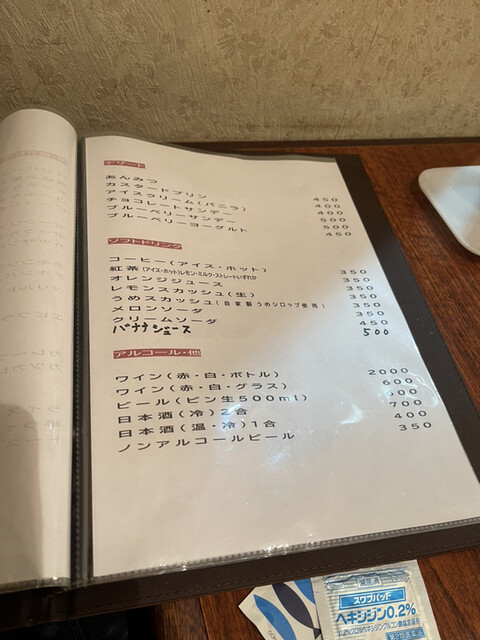 デザート
あんみつ 450
カスタードプリン 400
アイスクリーム(バニラ) 400
チョコレートサンデー 500
ブルーベリーサンデー 500
ブルーベリーヨーグルト 450
ソフトドリンク
コーヒー(アイス・ホット) 350
紅茶(アイス・ホット)レモン・ミルク・ストレートいずれか 350
オレンジジュース 350
レモンスカッシュ(生) 350
うめスカッシュ(自家製うめシロップ使用) 350
メロンソーダ 350
クリームソーダ 450
バナナジュース 500
アルコール・他
ワイン(赤・白・ボトル) 2000
ワイン(赤・白・グラス) 600
ビール(ビン生500ml) 600
日本酒(冷)2合 700
日本酒(温・冷)1合 400
ノンアルコールビール 350
スワブパッドF
ヘキシジン0.2%